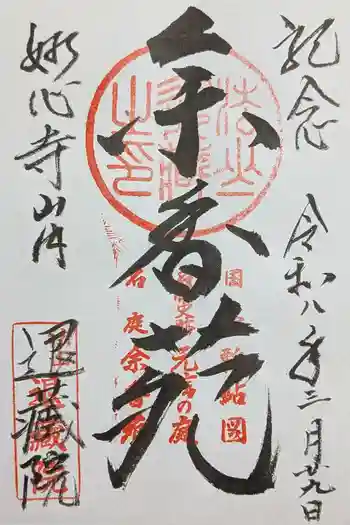 記念
令和八年三月廿九日
余香苑
妙心寺山内
退蔵院
国宝 瓢鮎図
史跡 元信の庭
名庭余香苑
退蔵院